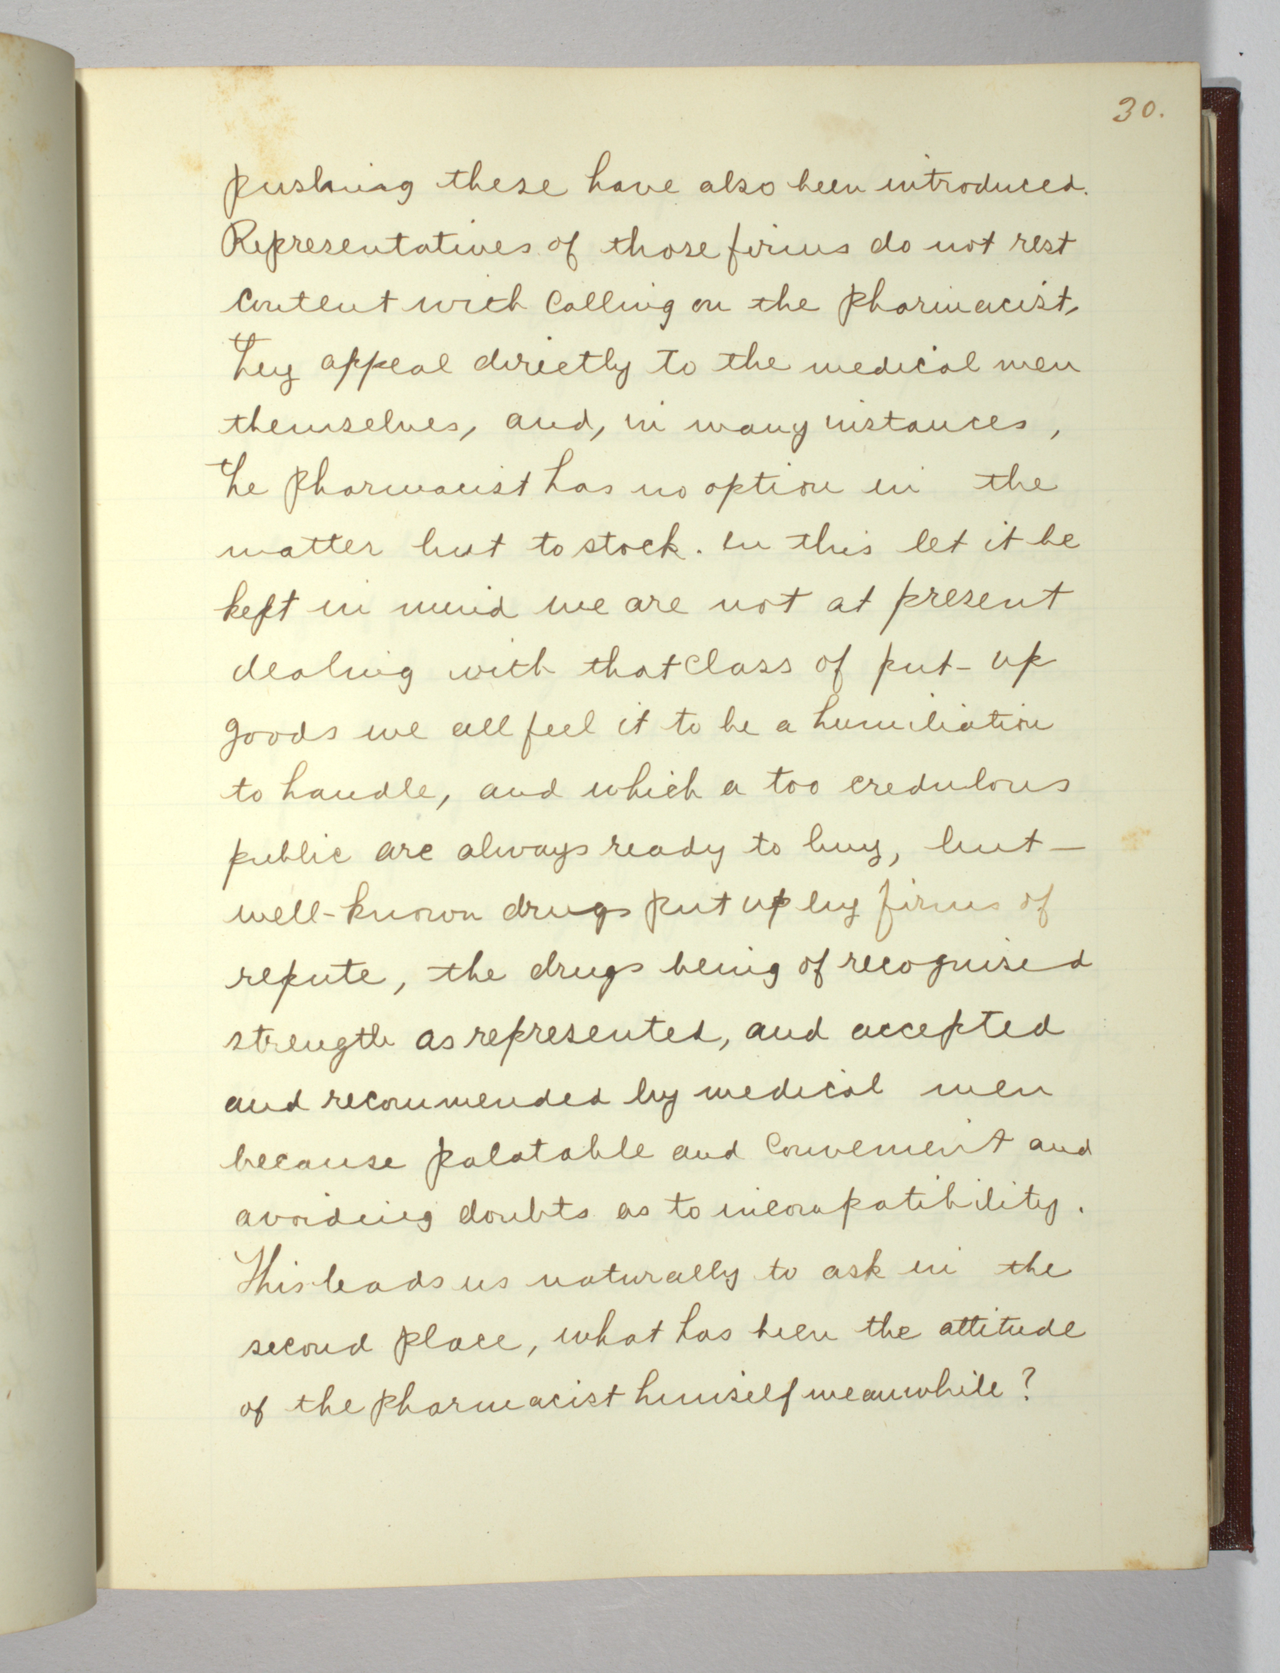 30.
pushing these have also been introduced.
Representatives of those firms do not rest
content with calling on the pharmacist,
they appeal directly to the medical men
themselves, and, in many instances,
the pharmacist has no option in the
matter but to stock. In this let it be
kept in mind we are not at present
dealing with that class of put-up
goods we all feel it to be a humiliation
to handle, and which a too credulous
public are always ready to buy, but—
well-known drugs put up by firms of
repute, the drugs being of recognised
strength as represented, and accepted
and recommended by medical men
because palatable and convenient and
avoiding doubts as to incompatibility.
This leads us naturally to ask in the
second place, what has been the attitude
of the pharmacist himself meanwhile?